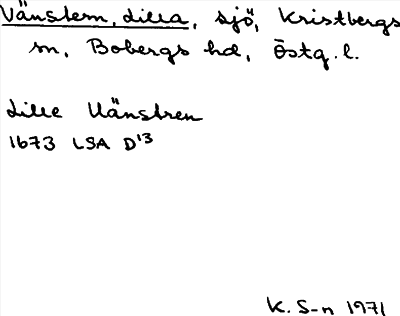 Vänstern, Lilla, sjö, Kristbergs
sn, Bobergs hd, Östg. l.
Lille Uänstren
1673 LSA D13
K. S-n 1971